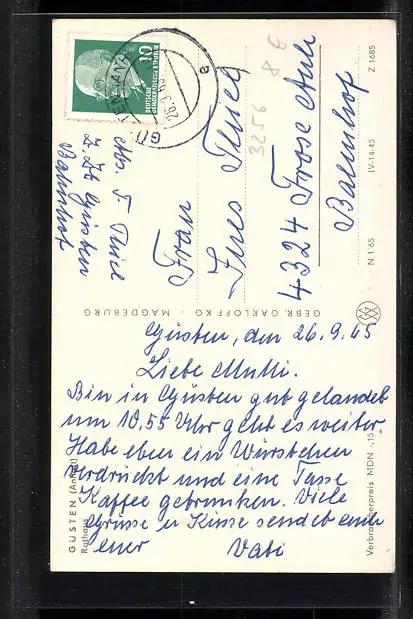 Güsten, den 26.9.65
Liebe Mutti.
Bin in Güsten gut gelandet
um 10,55 Uhr geht es weiter
Habe eben ein Würstchen
verdrückt und eine Tasse
Kaffee getrunken. Viele
Grüsse u Küsse sendet euch
euer Vati
Abs. F. Thiel
z. Zt. Güsten
Bahnhof
Frau
Ines Thiel
4324 Frose Anh
Bahnhof
3256 8 E
10
DEUTSCHE
DEMOKRATISCHE REPUBLIK
GEBR. GARLOFF KG · MAGDEBURG
GÜSTEN (Anhalt)
Rathaus
Verbraucherpreis MDN -,15
N 1 65
IV-14-45
Z 1685